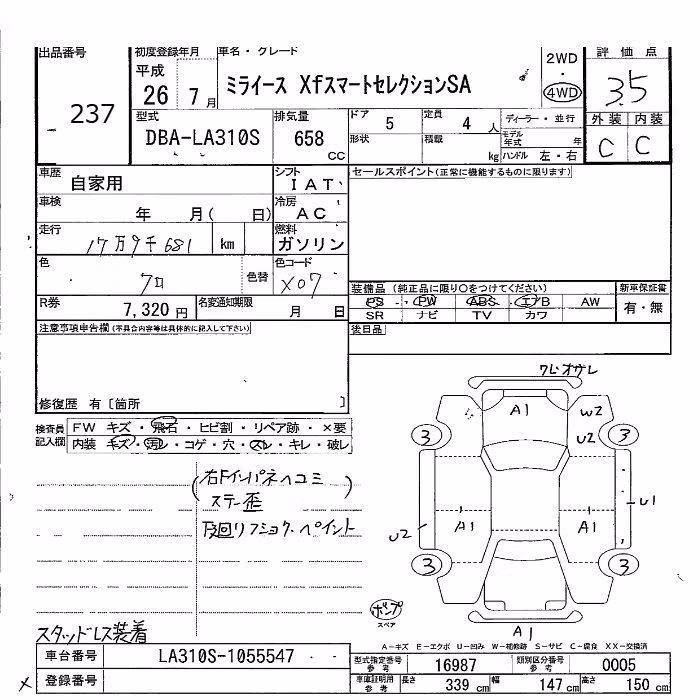 出品番号 初度登録年月 車名・グレード 2WD 評価点
237 平成 26 7月 ミライース XfスマートセレクションSA ・ 4WD 3.5
型式 排気量 ドア 5 定員 4人 ディーラー・並行 外装 内装
DBA-LA310S 658 CC 形状 積載 kg モデル年式 年 C C
ハンドル 左・右
車歴 自家用 シフト IAT セールスポイント(正常に機能するものに限ります)
車検 年 月( 日) 冷房 AC
走行 17万9千681 km 燃料 ガソリン
色 クロ 色替 色コード X07
装備品 (純正品に限り○をつけてください) 新車保証書
R券 7,320円 名変通知期限 月 日 PS PW ABS エアB AW 有・無
SR ナビ TV カワ
注意事項申告欄(不具合内容等は具体的に記入して下さい) 後日品
修復歴 有〔箇所 〕
検査員記入欄 FW キズ・飛石・ヒビ割・リペア跡・×要
内装 キズ・汚レ・コゲ・穴・スレ・キレ・破レ
ワレ・オサレ
A1 W2
3 U2 3
(右Fインパネヘコミ
ステー歪)
下回リフショク・ペイント
U2 A1 A1 U1
3 3
ポンプ
スペア
A1
スタッドレス装着
A-キズ E-エクボ U-凹み W-補修跡 S-サビ C-腐食 XX-交換済
車台番号 LA310S-1055547 型式指定番号 参考 16987 類別区分番号 参考 0005
登録番号 車庫証明用 参考 長さ 339 cm 幅 147 cm 高さ 150 cm